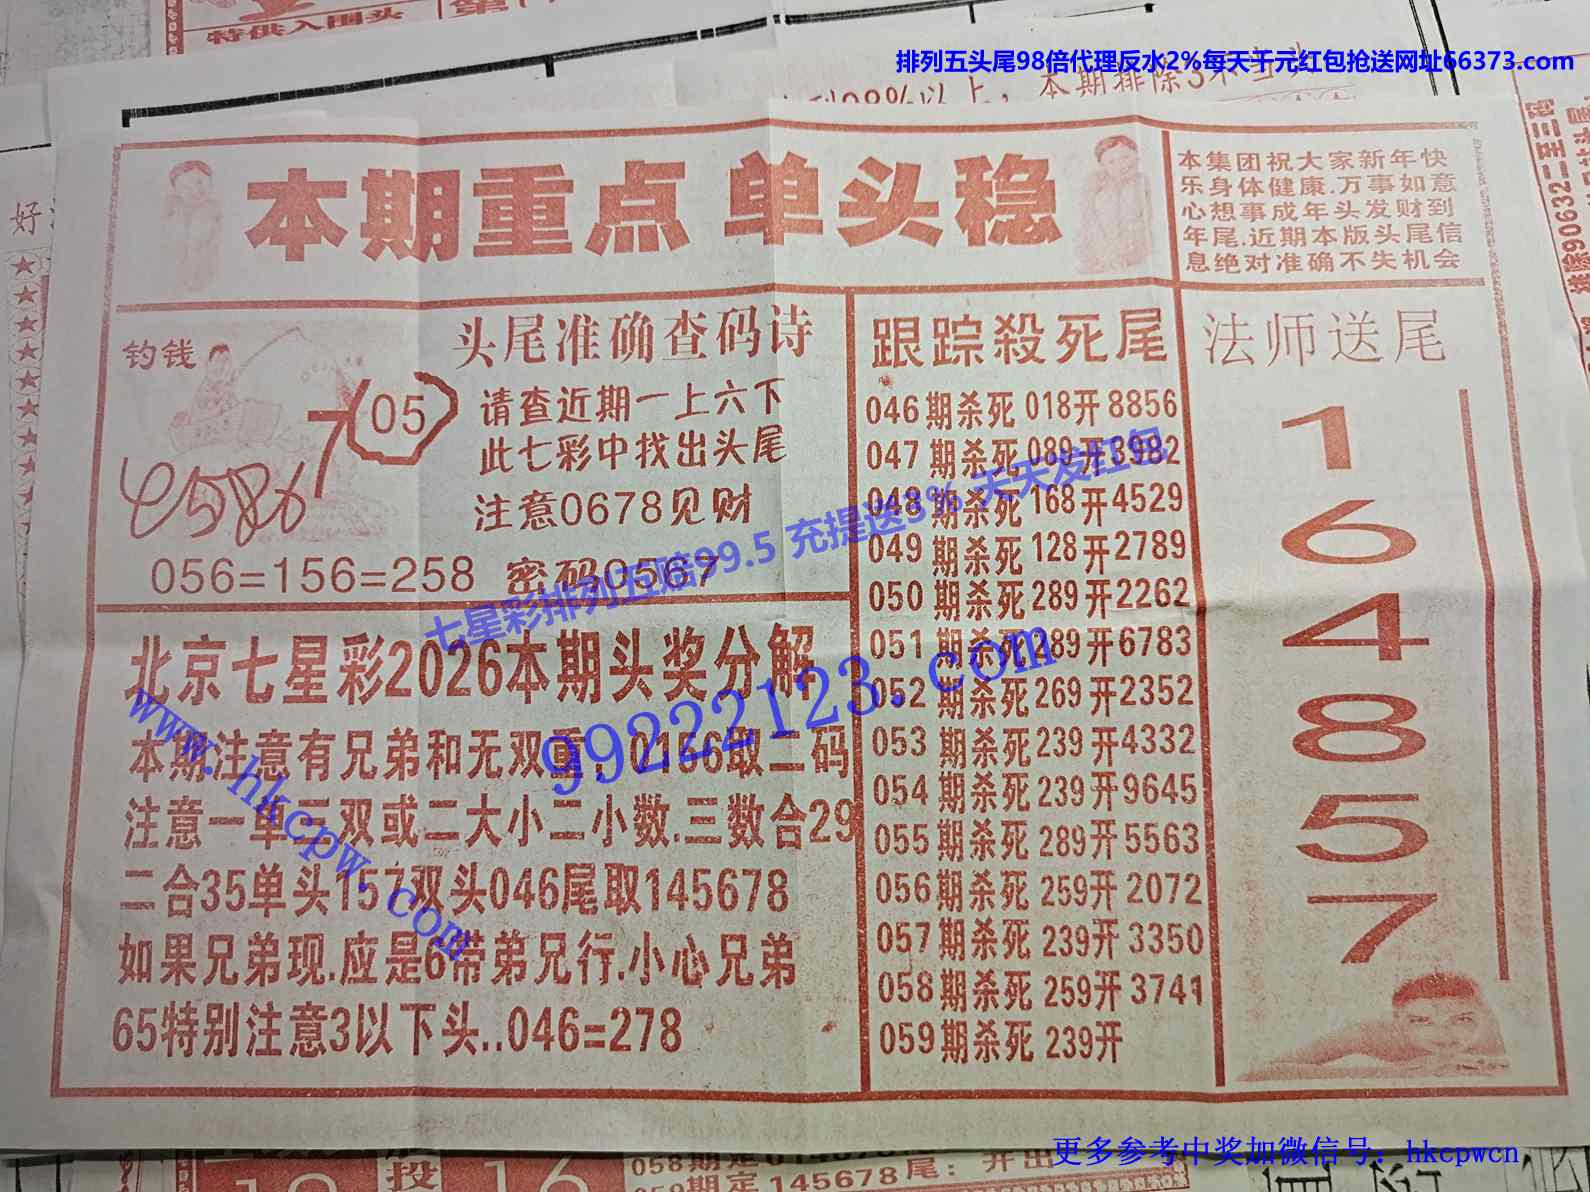 特供入围头
排列五头尾98倍代理反水2%每天千元红包抢送网址66373.com
本期排除3不当头
本期重点 单头稳
本集团祝大家新年快
乐身体健康.万事如意
心想事成年头发财到
年尾.近期本版头尾信
息绝对准确不失机会
钓钱
05
7
头尾准确查码诗
请查近期一上六下
此七彩中找出头尾
注意0678见财
056=156=258 密码0567
七星彩排列五赔99.5 充提送3% 天天发红包
北京七星彩2026本期头奖分解
本期注意有兄弟和无双重,0156取二码
注意一单三双或二大小二小数.三数合29
二合35单头157双头046尾取145678
如果兄弟现.应是6带弟兄行.小心兄弟
65特别注意3以下头..046=278
www.hkcpw.com
99222123.com
跟踪殺死尾
046期杀死018开8856
047期杀死089开3982
048期杀死168开4529
049期杀死128开2789
050期杀死289开2262
051期杀死289开6783
052期杀死269开2352
053期杀死239开4332
054期杀死239开9645
055期杀死289开5563
056期杀死259开2072
057期杀死239开3350
058期杀死259开3741
059期杀死239开
法师送尾
1
6
4
8
5
7
更多参考中奖加微信号: hkcpwcn
投
16
145678尾:开出